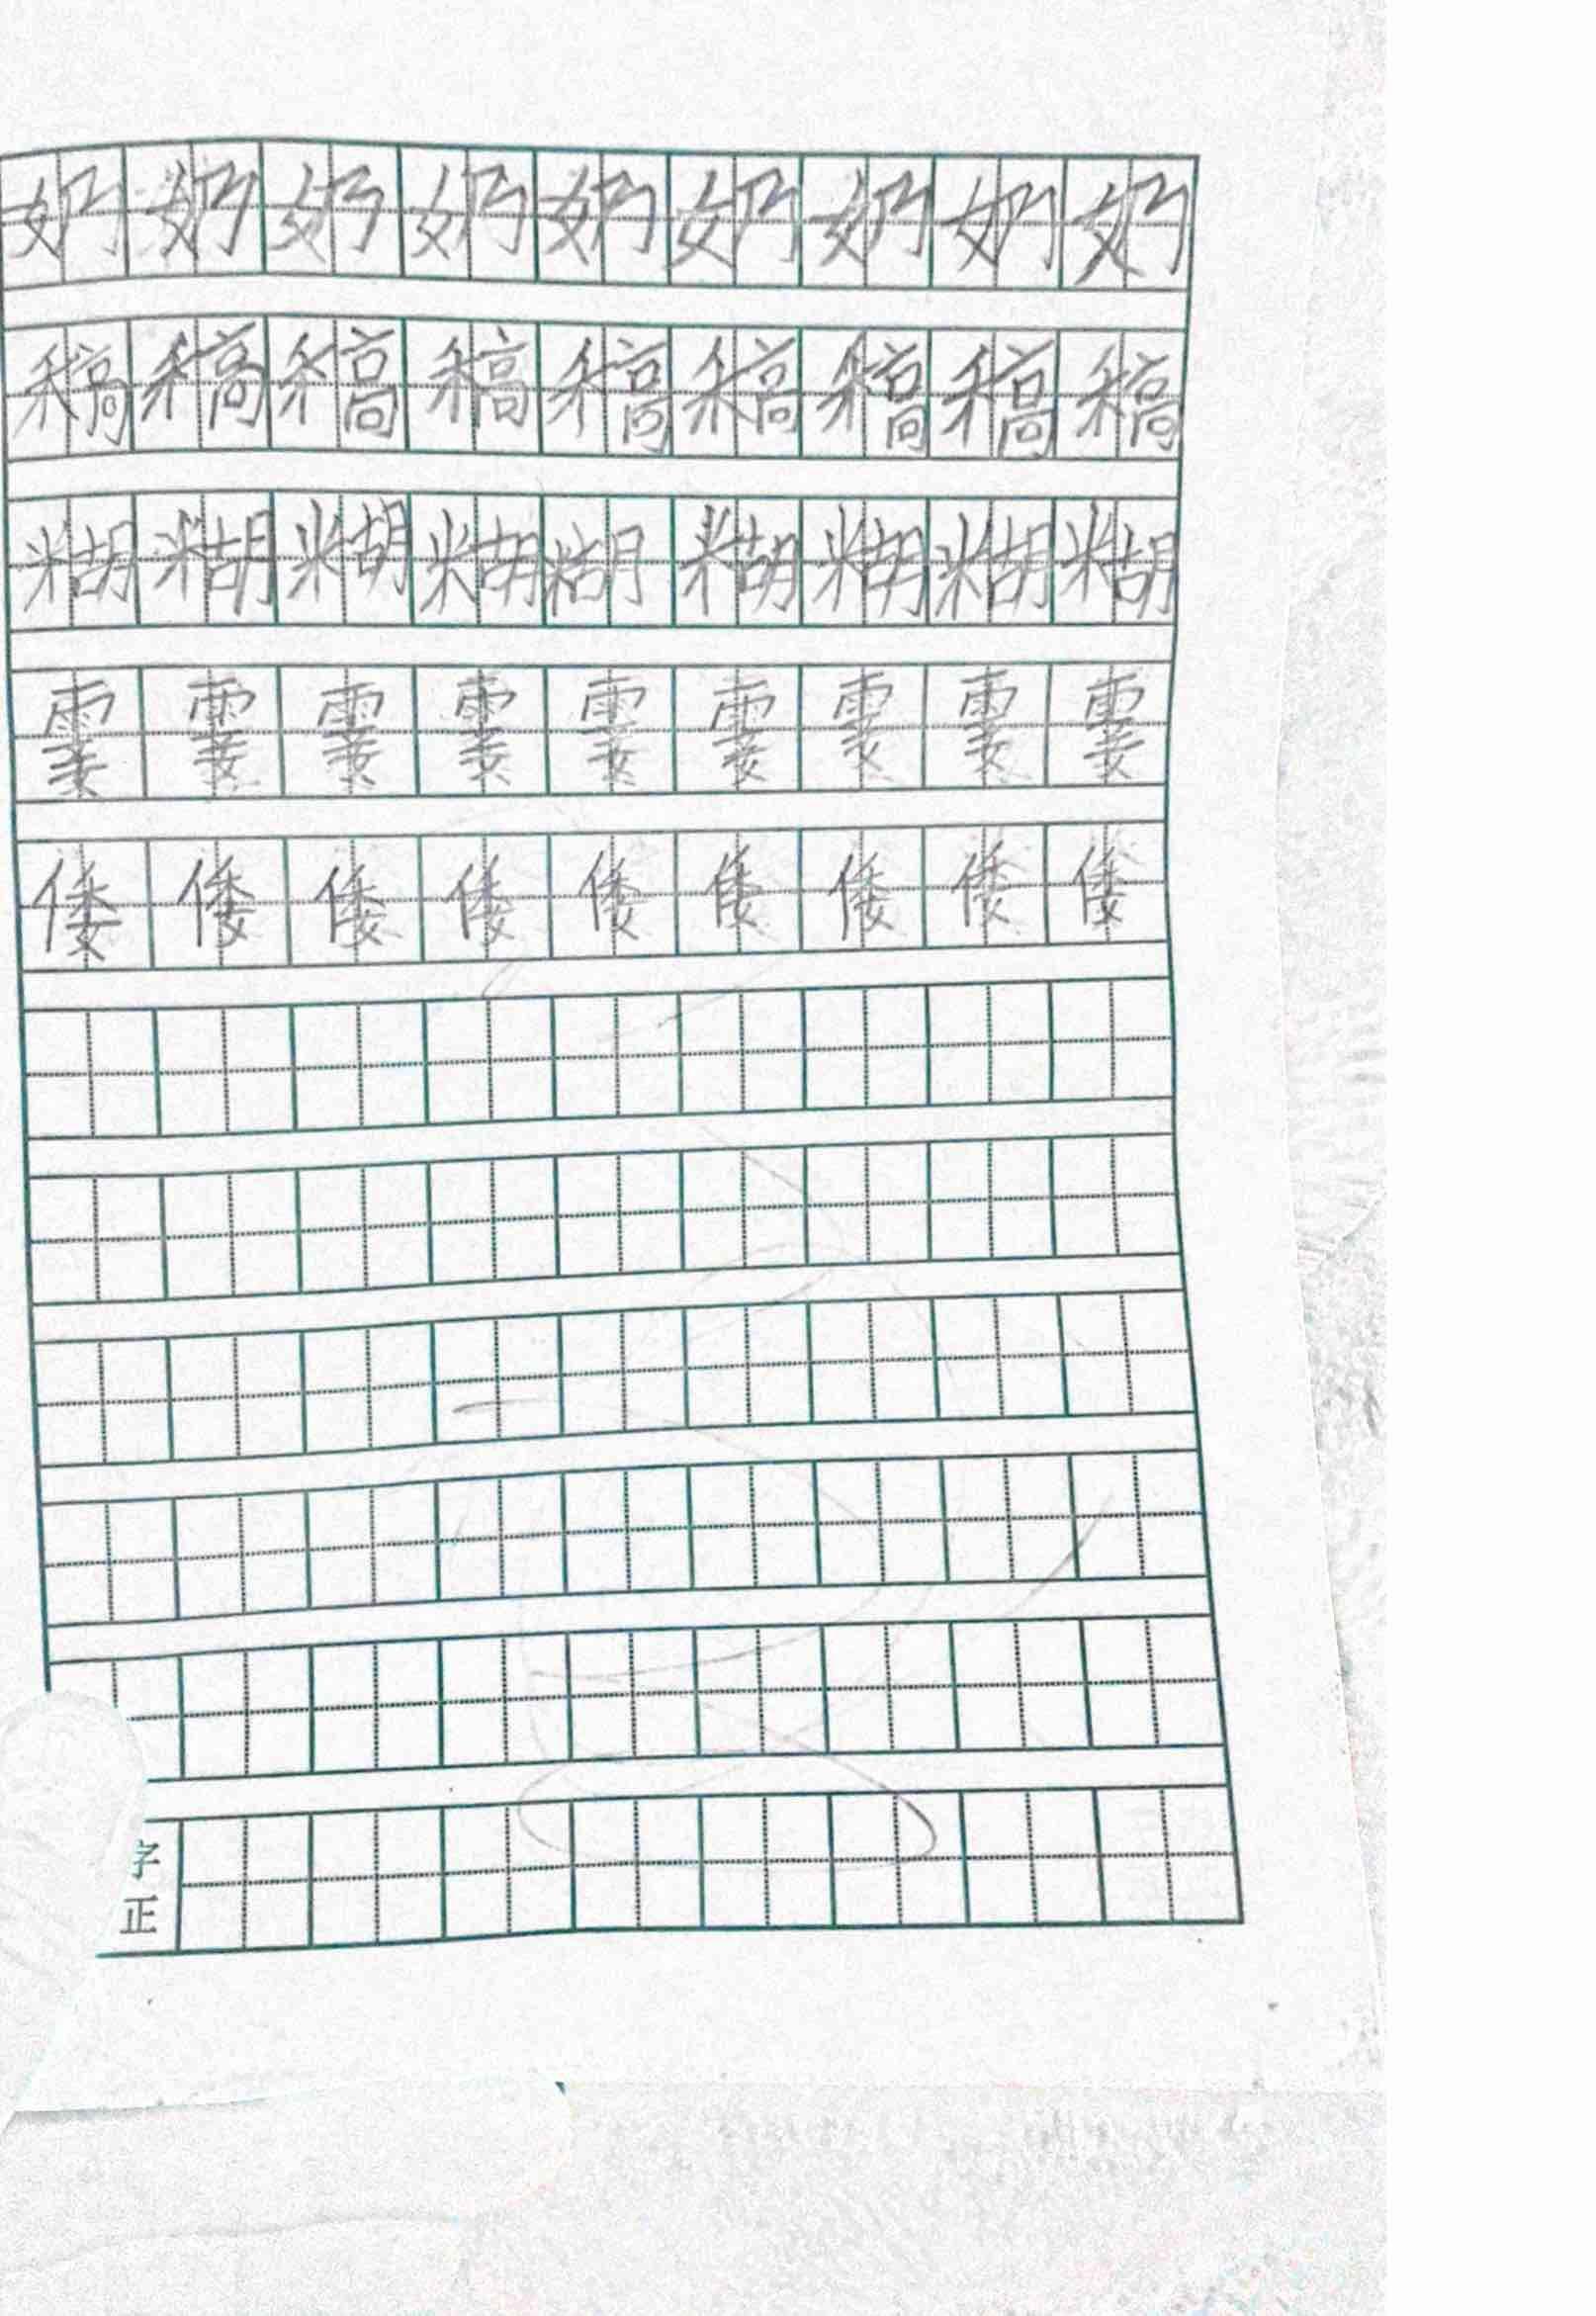 奶奶奶奶奶奶奶奶奶
稿稿稿稿稿稿稿稿稿
糊糊糊糊糊糊糊糊糊
霎霎霎霎霎霎霎霎霎
倭倭倭倭倭倭倭倭倭
字
正